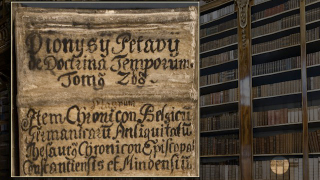 Dionysÿ Petavÿ
de Doctrina Temporum.
Tomg 2dg.
Item Chronicon Belgicu
Germanicaru Antiquitatu
Thesaurg Chronicon Episcopal
Constantiensis et Mindensiu